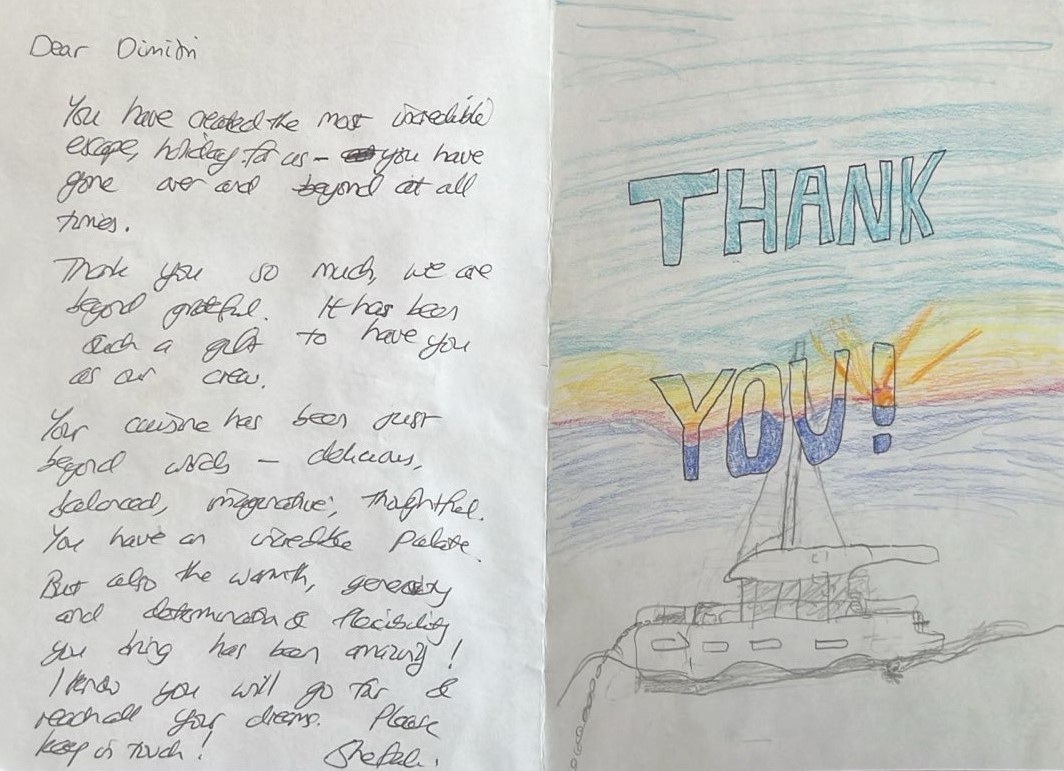 Dear Dimitri
You have created the most incredible
escape, holiday for us - you have
gone over and beyond at all
times.
Thank you so much, we are
beyond grateful. It has been
such a gift to have you
as our crew.
Your cuisine has been just
beyond words - delicious,
balanced, imaginative, thoughtful.
You have an incredible Palate.
But also the warmth, generosity
and determination & flexibility
you bring has been amazing!
I know you will go far &
reach all your dreams. Please
keep in touch!
THANK
YOU!